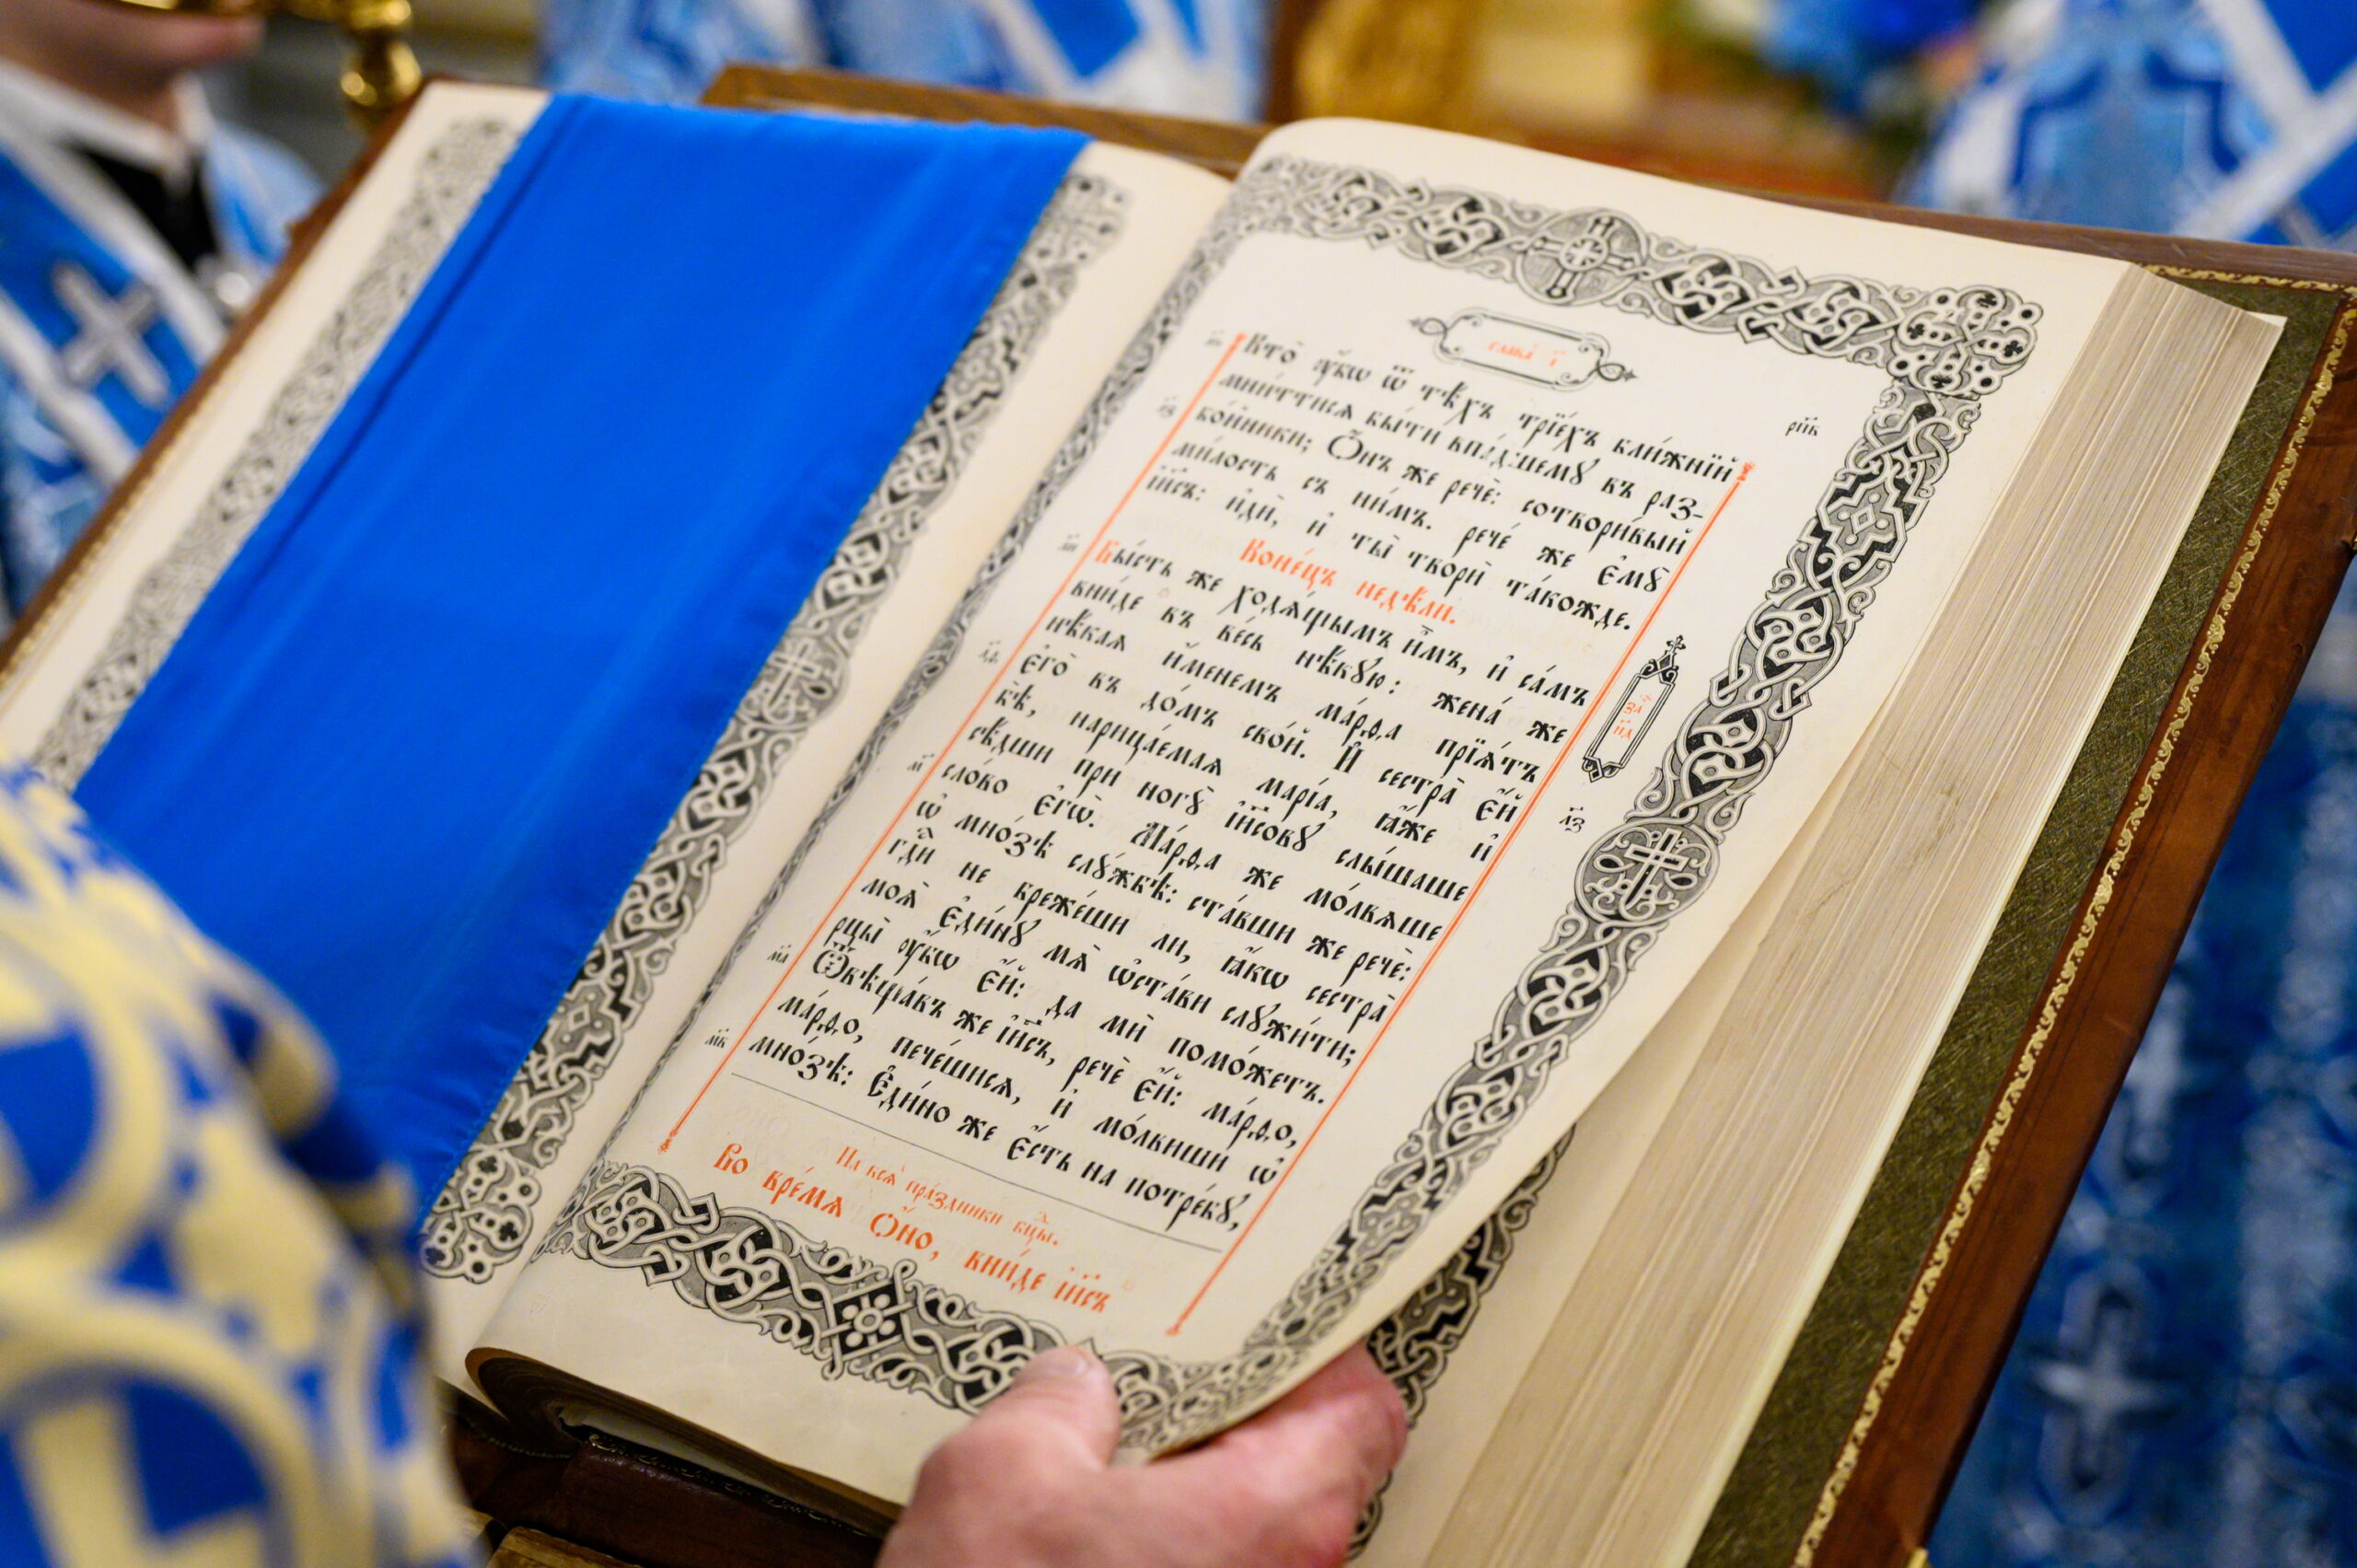 глава̀ і҃
Кто̀ ᲂу҆̀бѡ ѿ тѣ́хъ трїе́хъ бли́жнїй
мни́ттисѧ бы́ти впа́дшемꙋ въ раз-
бо́йники; Ѻ҆́нъ же речѐ: сотвори́вый
ми́лость съ ни́мъ. рече́ же є҆мꙋ̀
і҆и҃съ: и҆дѝ, и҆ ты̀ творѝ та́кожде.
Коне́цъ недѣ́ли.
Бы́сть же ходѧ́щымъ и҆̀мъ, и҆ са́мъ
вни́де въ ве́сь нѣ́кꙋю: жена́ же
нѣ́каѧ и҆́менемъ ма́рѳа прїѧ́тъ
є҆го̀ въ до́мъ сво́й. И҆ сестра̀ є҆́й
бѣ̀, нарица́емаѧ марі́а, ꙗ҆́же и҆
сѣ́дши при́ ногꙋ̀ і҆и҃совꙋ слы́шаше
сло́во є҆гѡ̀. Ма́рѳа же мо́лвѧше
ѡ҆ мно́зѣ слꙋ́жбѣ: ста́вши же речѐ:
гдⷭ҇и не бреже́ши ли, ꙗ҆́кѡ сестра̀
моѧ̀ є҆ди́нꙋ мѧ̀ ѡ҆ста́ви слꙋжи́ти;
рцы̀ ᲂу҆̀бѡ є҆́й: да мѝ помо́жетъ.
Ѿвѣща́въ же і҆и҃съ, речѐ є҆́й: ма́рѳо,
ма́рѳо, пече́шисѧ, и҆ мо́лвиши ѡ҆
мно́зѣ: Є҆ди́но же є҆́сть на потре́бꙋ,
На всѧ̀ пра́здники бцⷣы.
Во вре́мѧ ѻ҆́но, вни́де і҆и҃съ
рн҃в
за҃
нд҃
лз҃
м҃
ма҃
мв҃